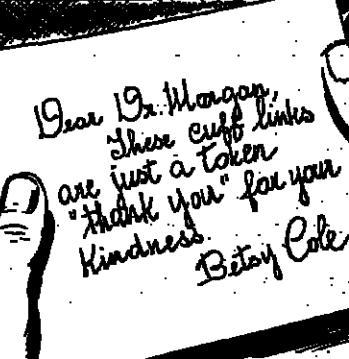 Dear Dr. Morgan,
These cuff links
are just a token
"thank you" for your
kindness.
Betsy Cole